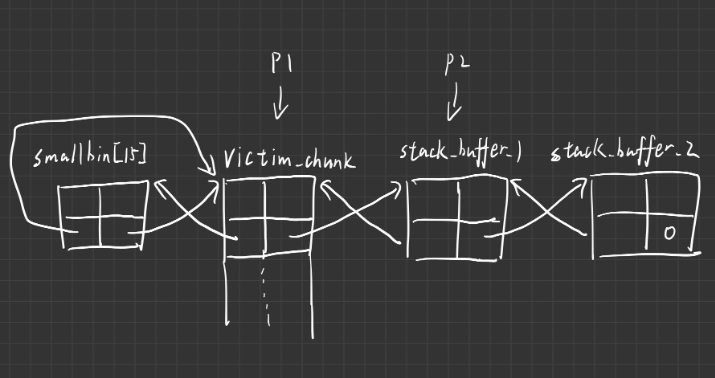 P1
P2
smallbin[15]
victim_chunk
stack_buffer_1
stack_buffer_2
0